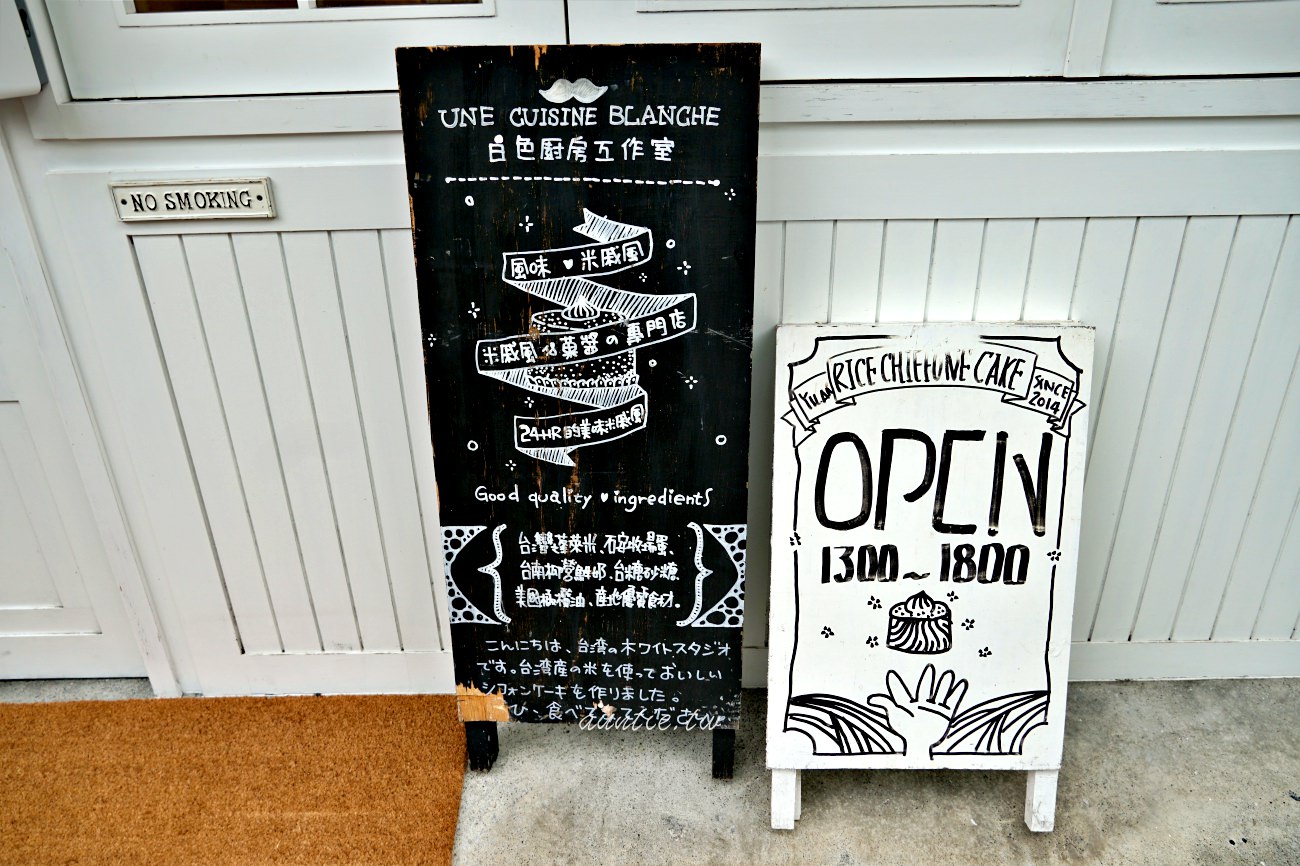 NO SMOKING
UNE CUISINE BLANCHE
白色厨房工作室
風味 ♥ 米戚風
米戚風&菓醬の專門店
24HR的美味米戚風
Good quality ♥ ingredients
台灣蓬萊米、石安牧場蛋、
台南柳營鮮奶、台糖砂糖
美國橄欖油、產地優質食材。
こんにちは、台湾のホワイトスタジオ
です。台湾産の米を使っておいしい
シフォンケーキを作りました。
び、食べ
RICE CHIFFONE CAKE
SINCE
2014
OPEN
1300~1800